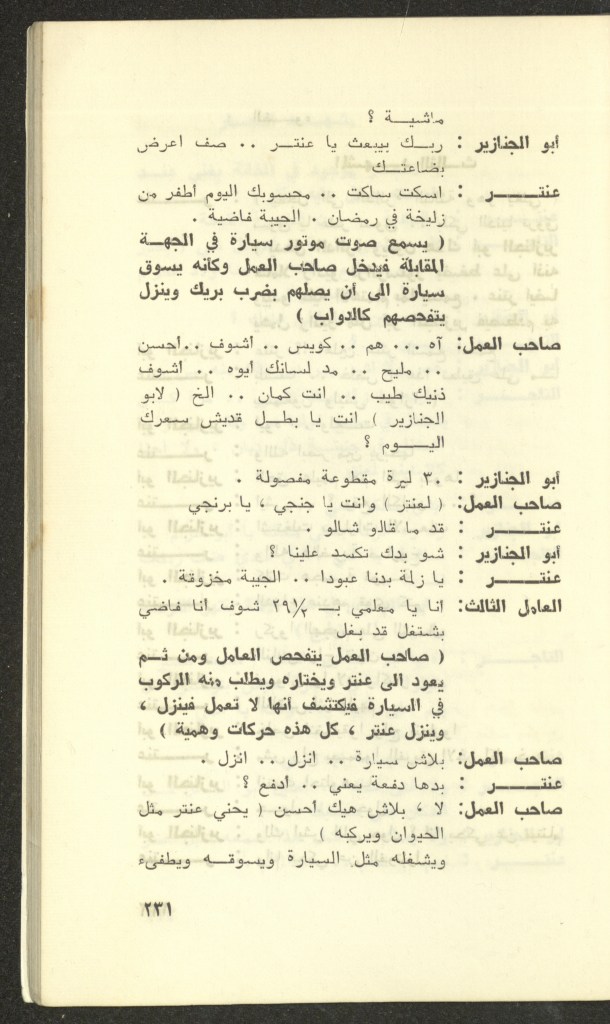 ماشيـــة ؟
أبو الجنازير : ربــك بيبعث يا عنتـــر .. صف اعرض
بضاعتــك
عنتـــــــر : اسكت ساكت .. محسوبك اليوم أطفر من
زليخة في رمضان . الجيبة فاضية .
( يسمع صوت موتور سيارة في الجهــة
المقابلة فيدخل صاحب العمل وكأنه يسوق
سيارة الى أن يصلهم بضرب بريك وينزل
يتفحصهم كالدواب )
صاحب العمل: آه ... هم .. كويس .. اشوف ..أحسن
.. مليح .. مد لسانك أيوه .. اشوف
ذنيك طيب .. انت كمان .. الخ ( لابو
الجنازير ) انت يا بطــل قديش سعرك
اليـــوم ؟
أبو الجنازير : ٣٠ ليرة مقطوعة مفصولة .
صاحب العمل: ( لعنتر ) وانت يا جنجي ، يا برنجي
عنتـــــــر : قد ما قالو شالو .
أبو الجنازير : شو بدك تكسد علينا ؟
عنتـــــــر : يا زلمة بدنا عبودا .. الجيبة مخزوقة .
العامل الثالث: انا يا معلمي بــ ٢٩½ شوف انا فاضي
بشتغل قد بغل
( صاحب العمل يتفحص العامل ومن ثــم
يعود الى عنتر ويختاره ويطلب منه الركوب
في السيارة فيكتشف أنها لا تعمل فينزل ،
وينزل عنتر ، كل هذه حركات وهمية )
صاحب العمل: بلاش سيارة .. انزل .. انزل .
عنتـــــــر : بدها دفعة يعني .. أدفع ؟
صاحب العمل: لا ، بلاش هيك أحسن ( يحني عنتر مثل
الحيوان ويركبه )
ويشغله مثل السيارة ويسوقــه ويطفىء
٢٣١